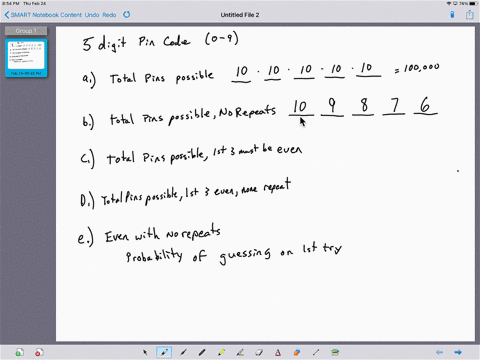 8:54 PM Thu Feb 24
76%
SMART Notebook Content Undo Redo
Untitled File 2
Group 1
5 digit Pin Code (0-9)
a.) Total Pins possible 10 · 10 · 10 · 10 · 10 = 100,000
b.) Total Pins possible, No Repeats 10 9 8 7 6
C.) Total Pins possible, 1st 3 must be even
D.) Total Pins possible, 1st 3 even, none repeat
e.) Even with No repeats
Probability of guessing on 1st try